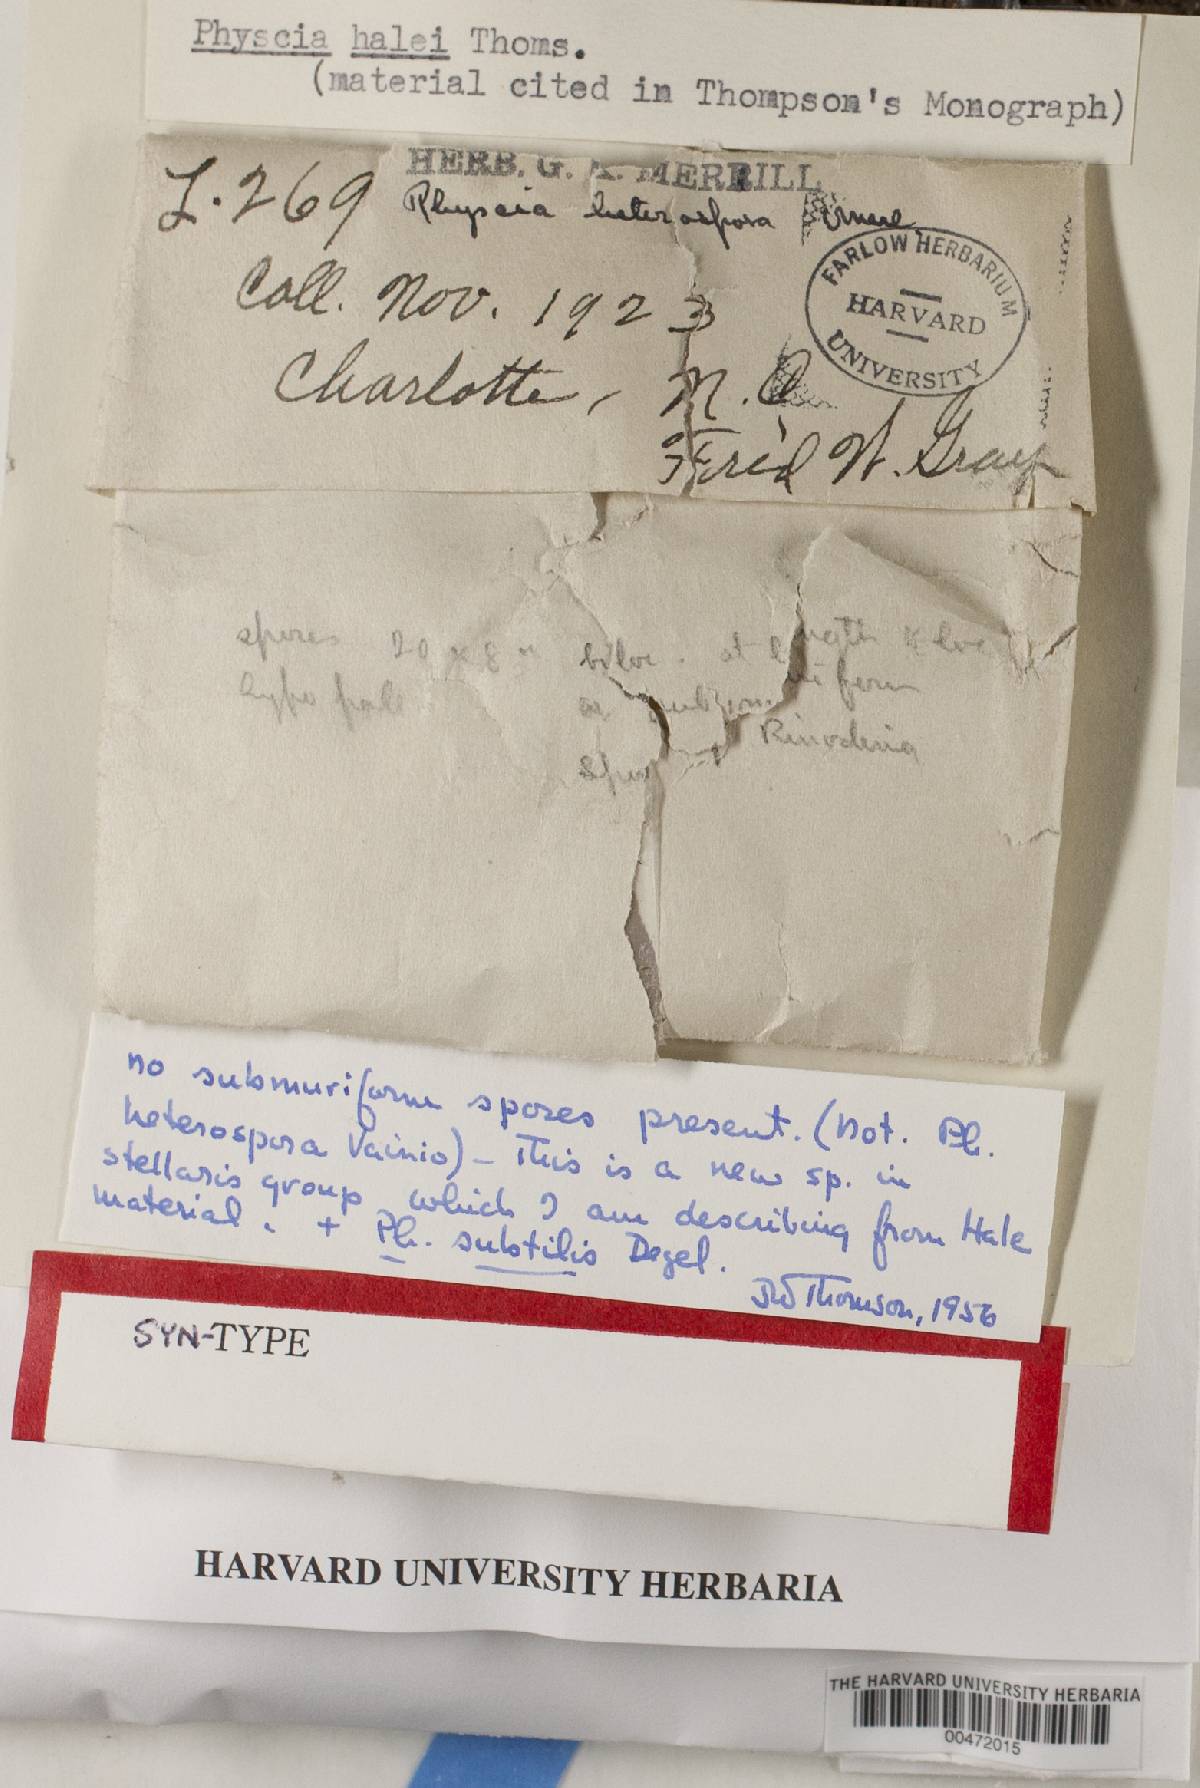 Physcia halei Thoms.
(material cited in Thompson's Monograph)
HERB. G. A. MERRILL
L. 269 Physcia heterospora
FARLOW HERBARIUM
HARVARD
UNIVERSITY
Coll. Nov. 1923
Charlotte, N. C
Fred W. Gray
spores 20 x 8 biloc. at length loc
hypo pale or
Rinodina
no submuriform spores present. (not. Ph.
heterospora Vainio) - This is a new sp. in
stellaris group which I am describing from Hale
material. + Ph. substilis Degel.
JW Thomson, 1956
SYN-TYPE
HARVARD UNIVERSITY HERBARIA
THE HARVARD UNIVERSITY HERBARIA
00472015